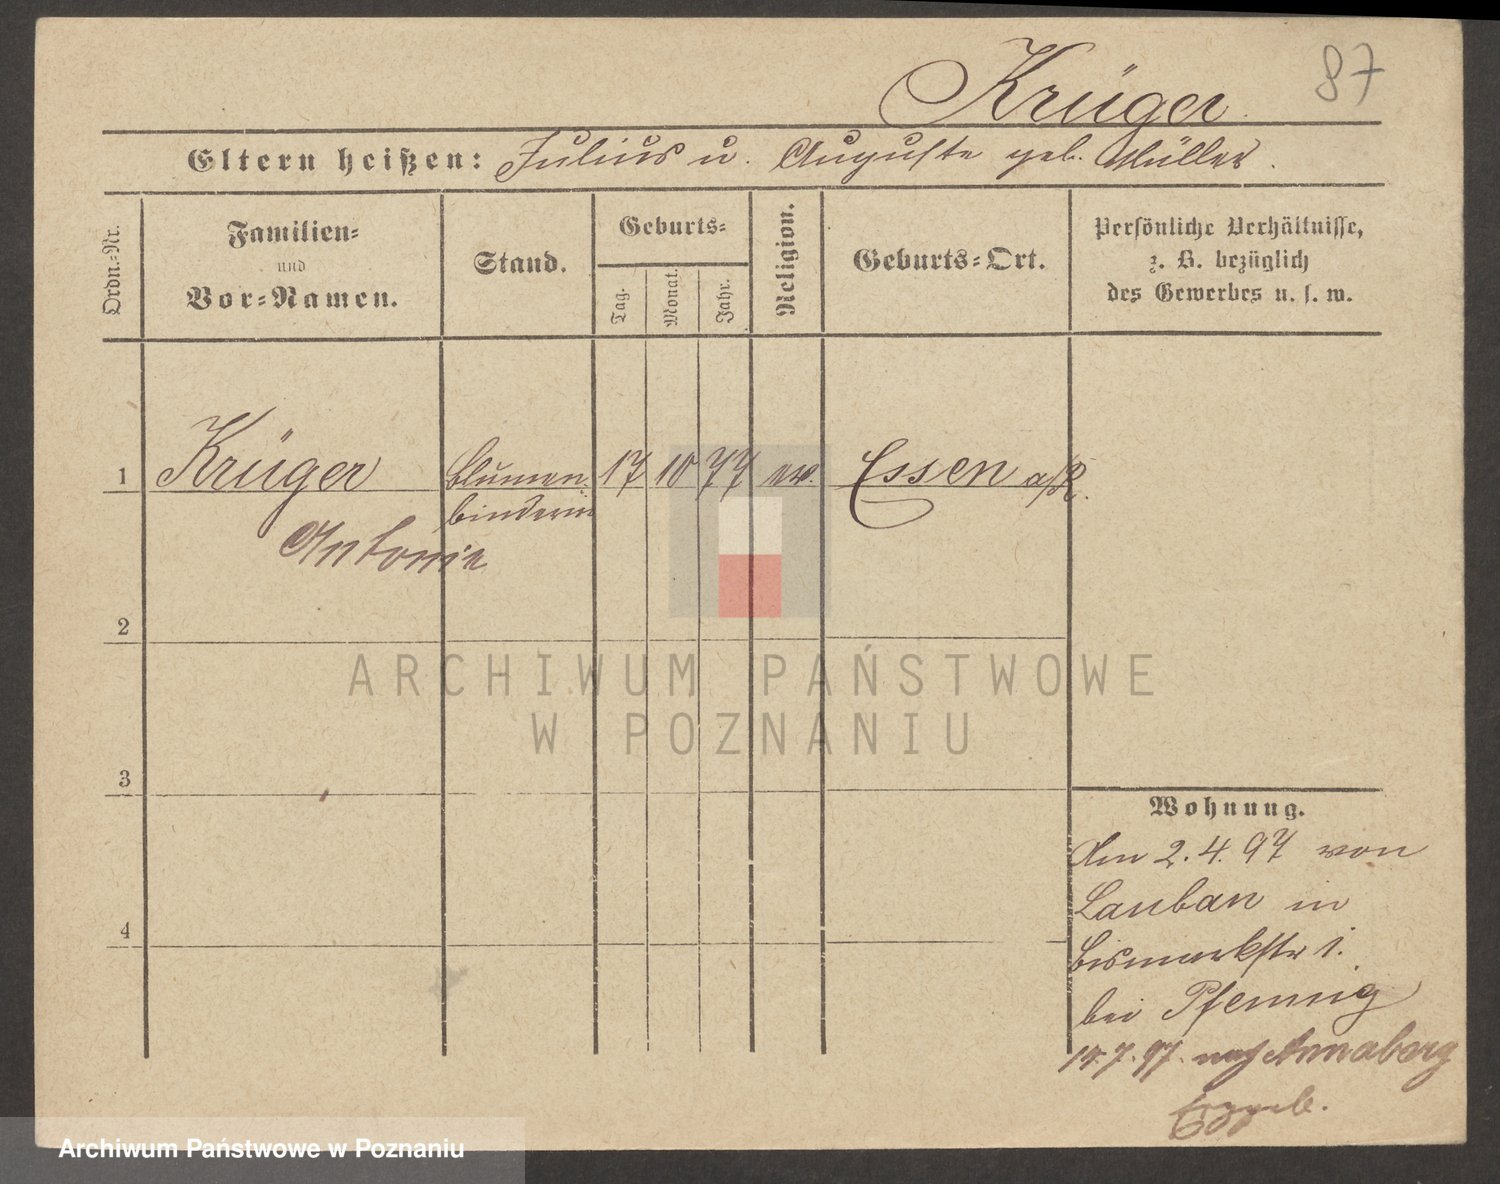 87
Krüger
Eltern heißen: Julius u. Auguste geb. Müller.
Ordn.-Nr.
Familien-
und
Vor-Namen.
Stand.
Geburts-
Tag.
Monat.
Jahr.
Religion.
Geburts-Ort.
Persönliche Verhältnisse,
z. B. bezüglich
des Gewerbes u. s. w.
1 Krüger Blumen 17 10 77 ev. Essen a/R.
binderin
Antonie
2
3
4
ARCHIWUM PAŃSTWOWE
W POZNANIU
Wohnung.
Am 2.4.97 von
Lauban in
Bismarkstr 1.
bei Pfennig
14.7.97. nach Annaberg
Erzgeb.
Archiwum Państwowe w Poznaniu